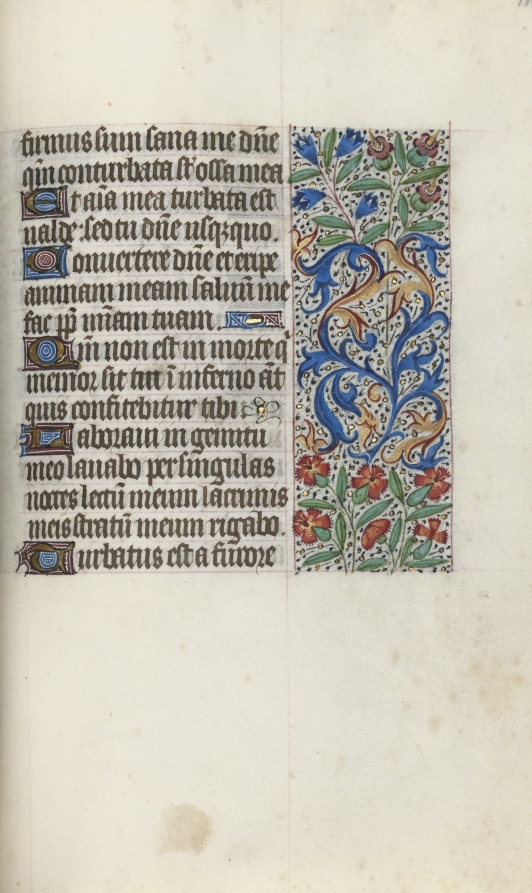 firmus sum sana me dñe
qm̃ conturbata st̃ ossa mea
Et aĩa mea turbata est
ualde · sed tu dñe usqȝquo.
Conuertere dñe et eripe
animam meam saluũ me
fac pp̃ mĩam tuam
Qm̃ non est in morte q̃
memor sit tui ĩ inferno aũt
quis confitebitur tibi
Laboraui in gemitu
meo lauabo per singulas
noctes lectũ meum lacrimis
meis stratũ meum rigabo
Turbatus est a furore